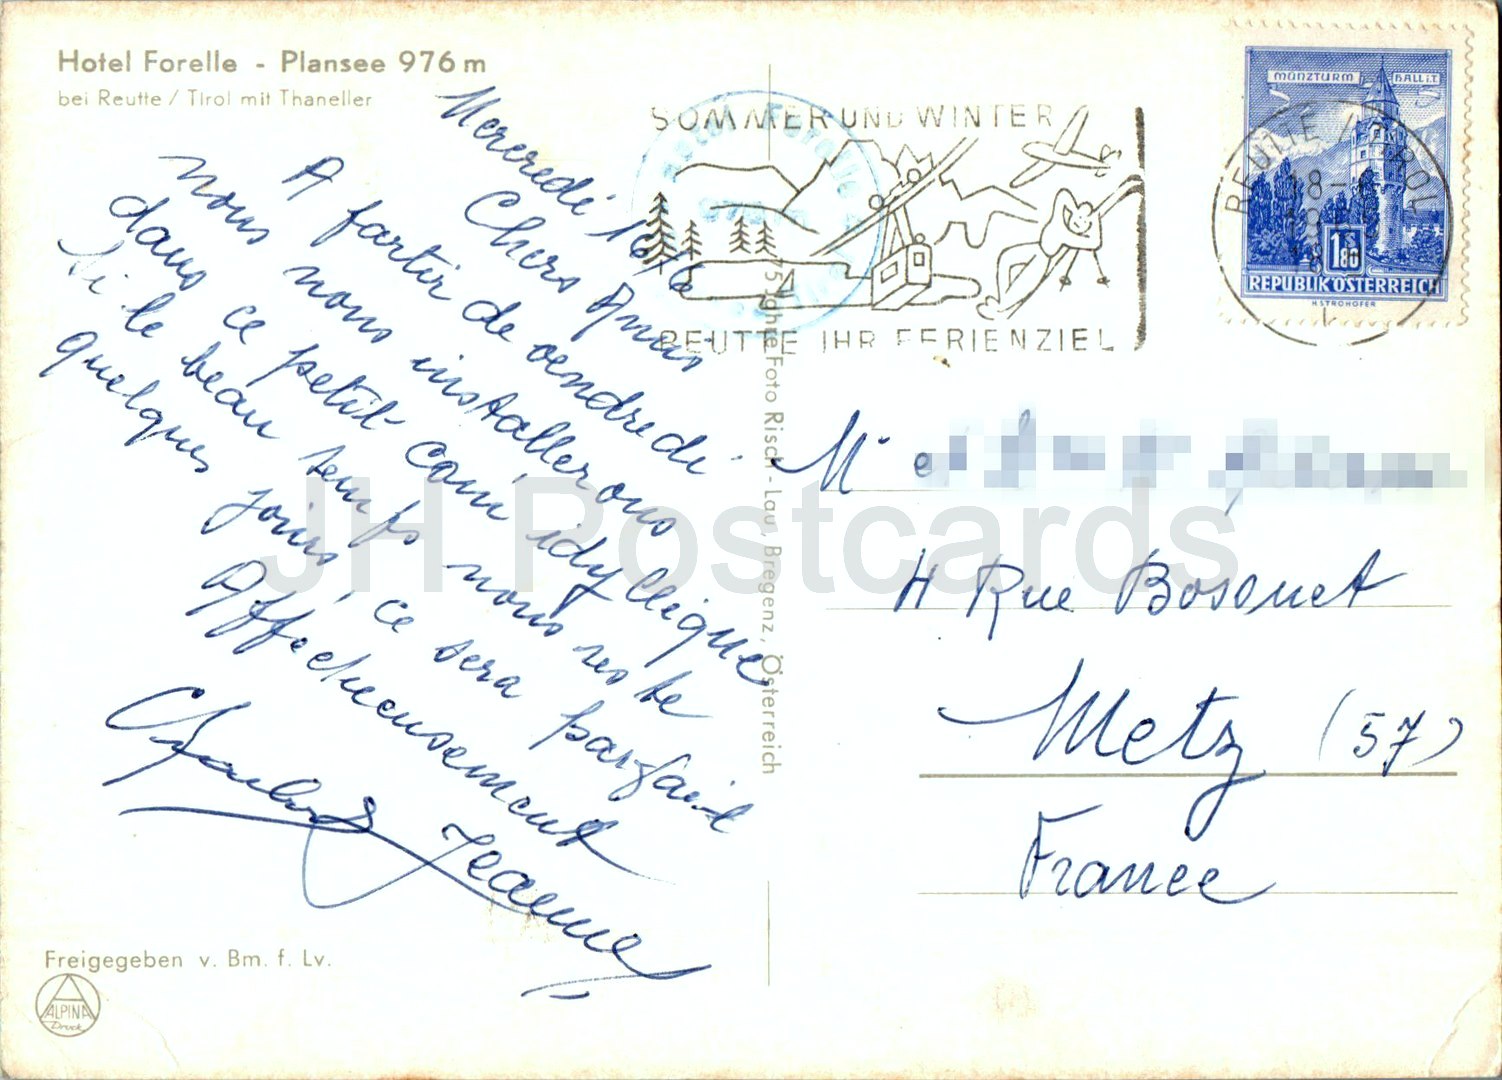 Hotel Forelle - Plansee 976 m
bei Reutte / Tirol mit Thaneller
Mercredi 16/6
Chers Amis
A partir de vendredi
nous nous installerons
dans ce petit coin idyllique
Si le beau temps nous reste
quelques jours, ce sera parfait
Affectueusement
Jeanne
Freigegeben v. Bm. f. Lv.
ALPINA
Druck
75 Jahre Foto Risch-Lau, Bregenz, Österreich
SOMMER UND WINTER
REUTTE IHR FERIENZIEL
Hotel Forelle
MÜNZTURM HALL i.T.
REUTTE / TIROL
18-
18
1 80
S
REPUBLIK ÖSTERREICH
H. STROHOFER
M et
4 Rue Bossuet
Metz (57)
France
JH Postcards